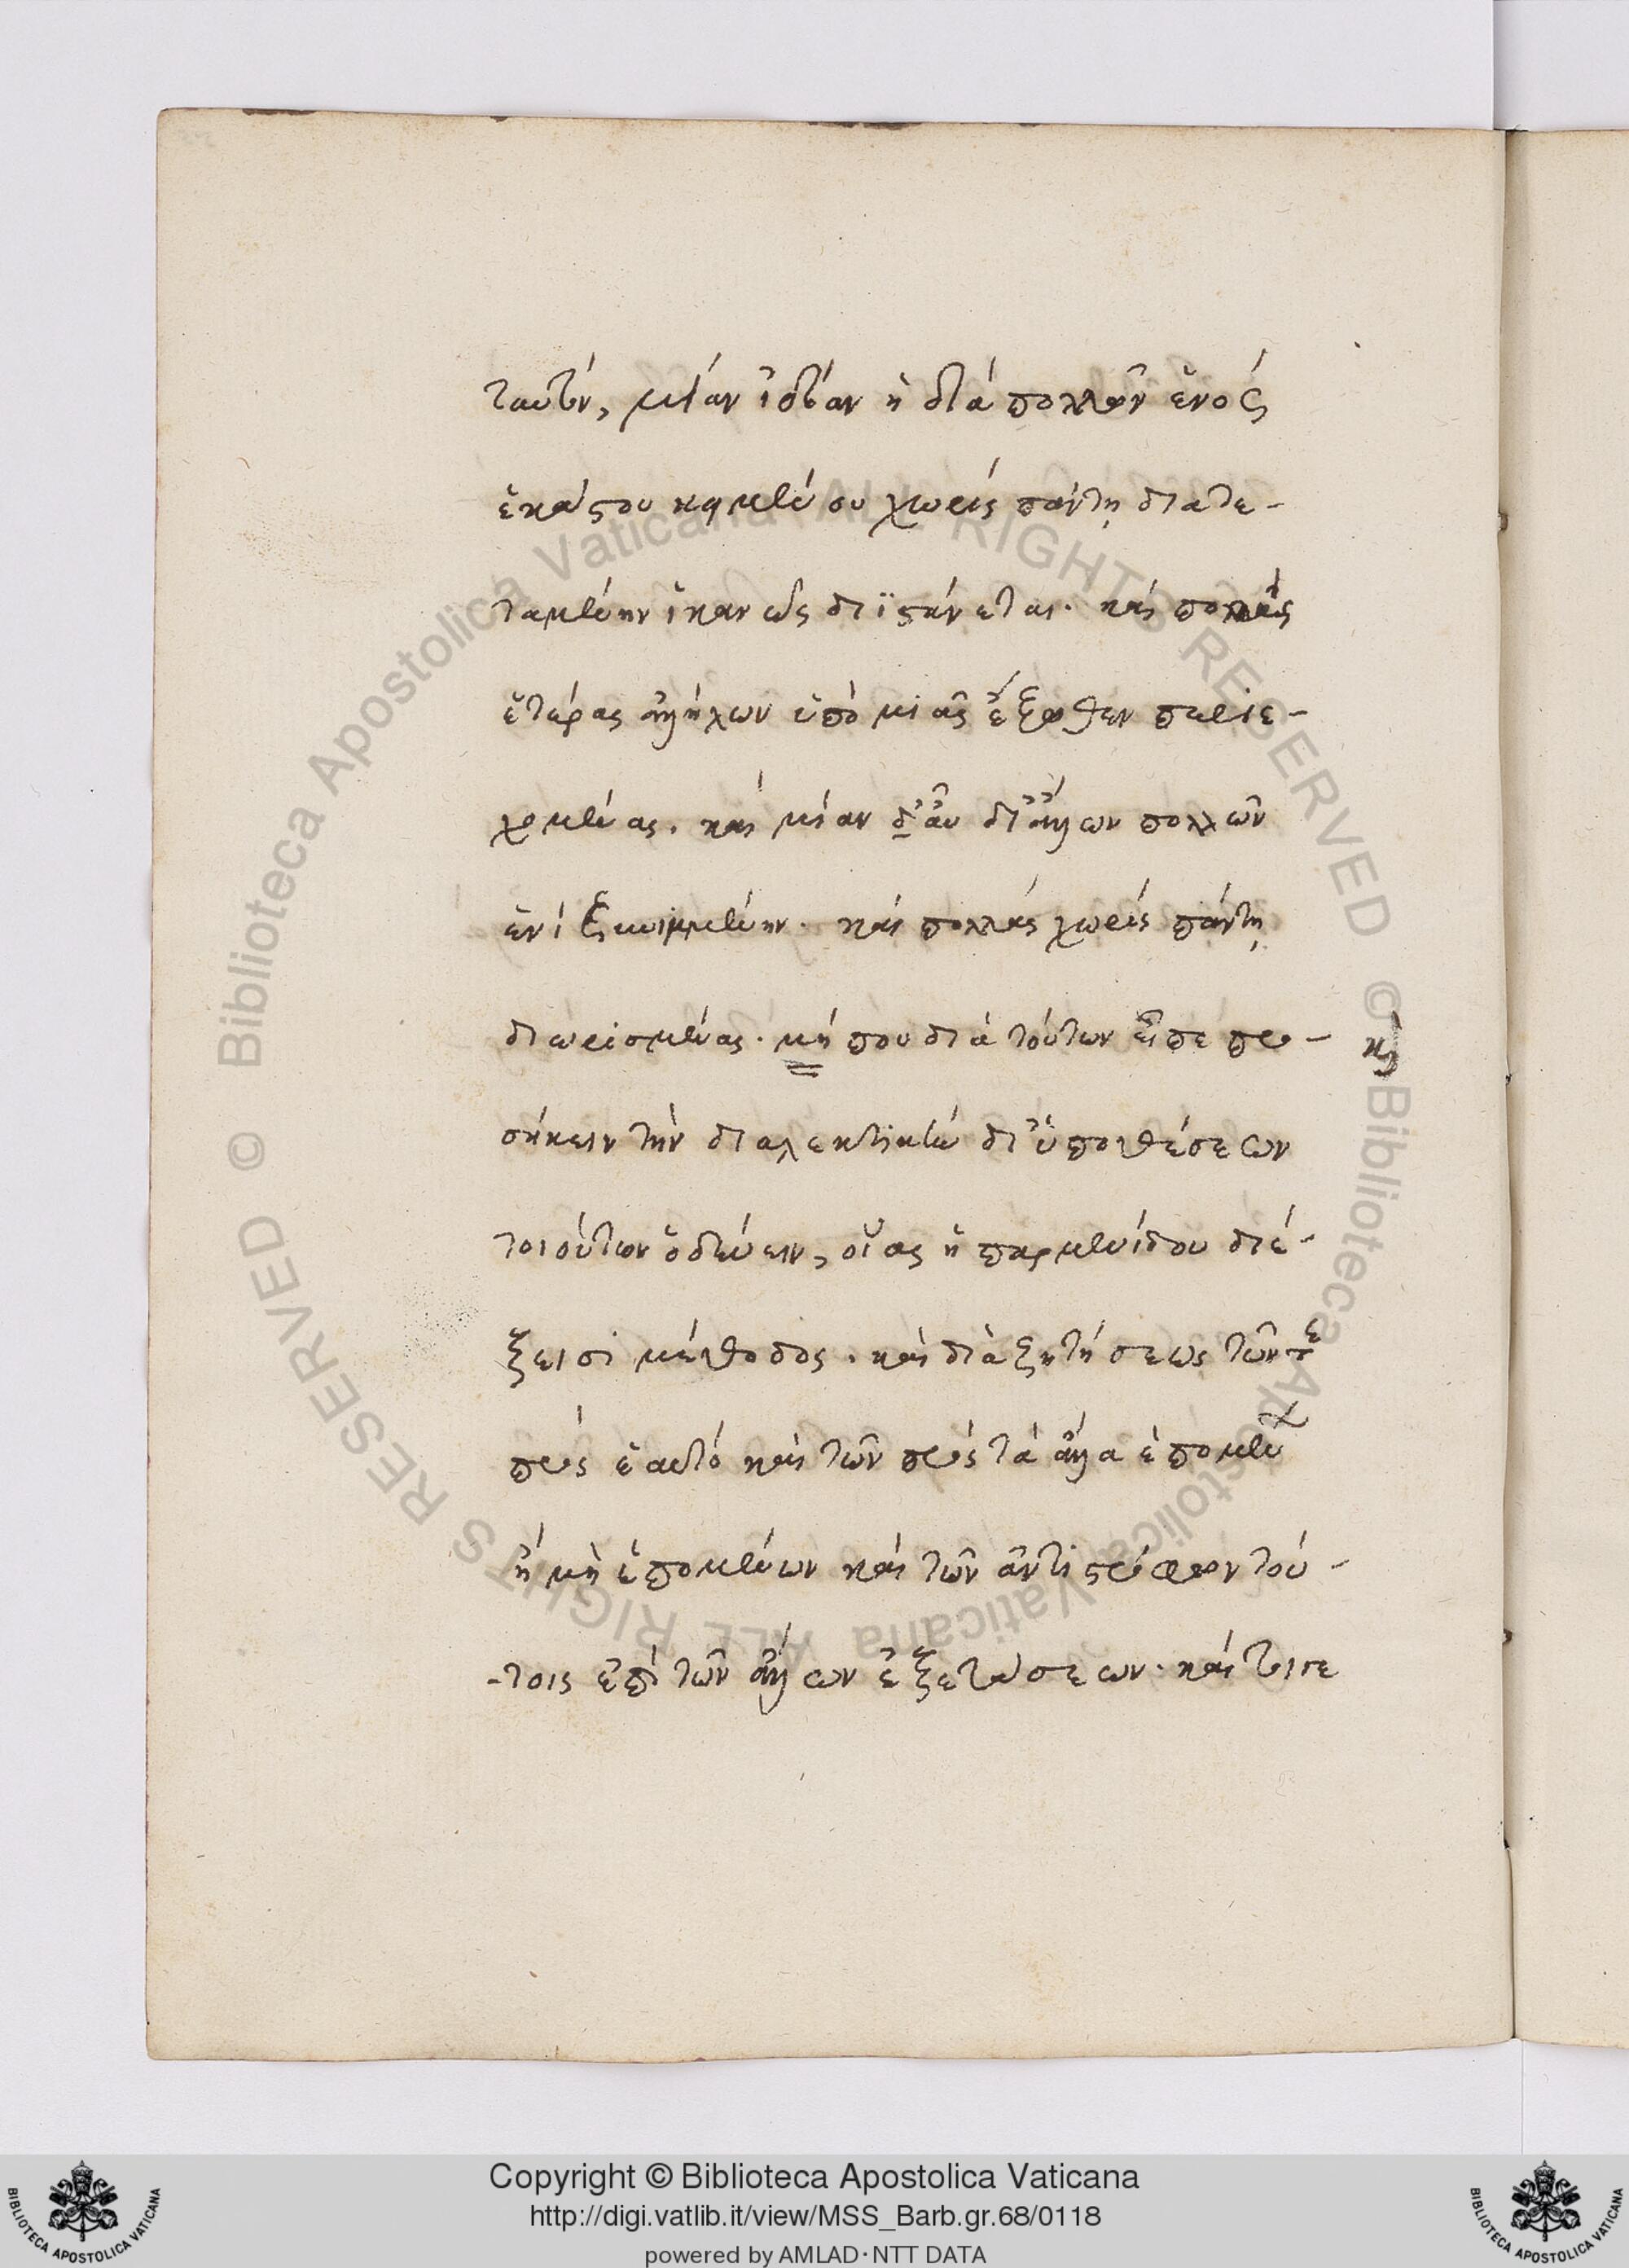 ταυτόν, μίαν ἰδέαν ἢ διὰ πολλῶν ἑνὸς
ἑκάστου κειμένου χωρὶς πάντη διατε-
ταμένην ἱκανῶς διϊσθάνεται. καὶ πολλὰς
ἑτέρας ἀλλήλων ὑπὸ μιᾶς ἔξωθεν περιε-
χομένας. καὶ μίαν δ' αὖ δι' ἄλλων πολλῶν
ἑνὶ ξυνημμένην. καὶ πολλὰς χωρὶς πάντη
διωρισμένας. μή που διὰ τούτων εἶπε προ-
σήκειν τὴν διαλεκτικὴν δι' ὑποθέσεων
τοιούτων ὁδεύειν, οἵας ἡ παρμενίδου διέ-
ξεισι μέθοδος. καὶ διὰ ζητήσεως τῶν τε
πρὸς ἑαυτὸ καὶ τῶν πρὸς τὰ ἄλλα ἑπομένων
ἢ μὴ ἑπομένων καὶ τῶν ἀντιστρόφων τού-
-τοις ἐπὶ τῶν ἄλλων ἐξετάσεων. καὶ τοῖσε
Copyright © Biblioteca Apostolica Vaticana
http://digi.vatlib.it/view/MSS_Barb.gr.68/0118
powered by AMLAD·NTT DATA
BIBLIOTECA APOSTOLICA VATICANA
BIBLIOTECA APOSTOLICA VATICANA
© Biblioteca Apostolica Vaticana ALL RIGHTS RESERVED © Biblioteca Apostolica Vaticana ALL RIGHTS RESERVED